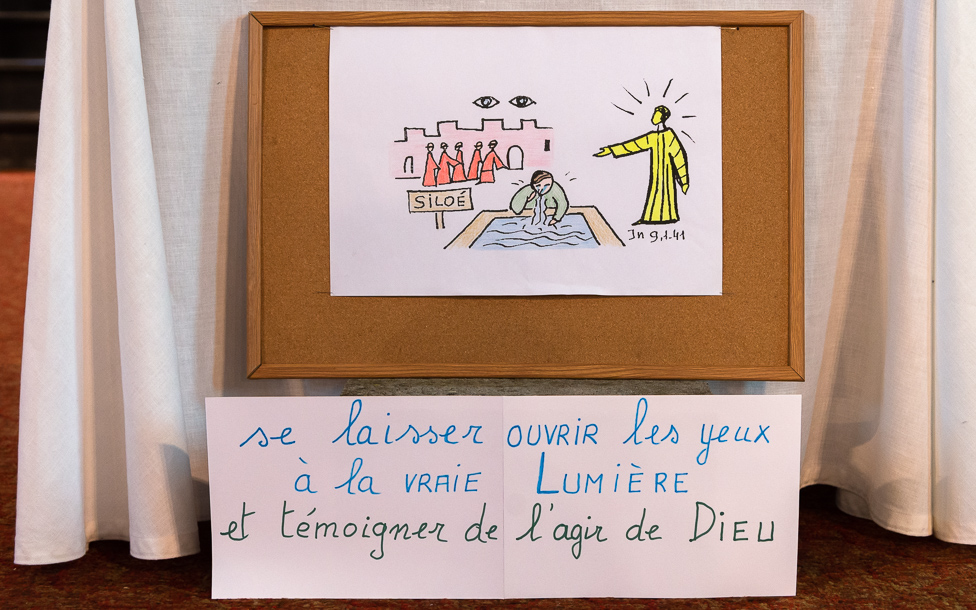 SILOÉ
Jn 9,1.41
se laisser OUVRIR les yeux
à la VRAIE LUMIÈRE
et témoigner de l'agir de DIEU